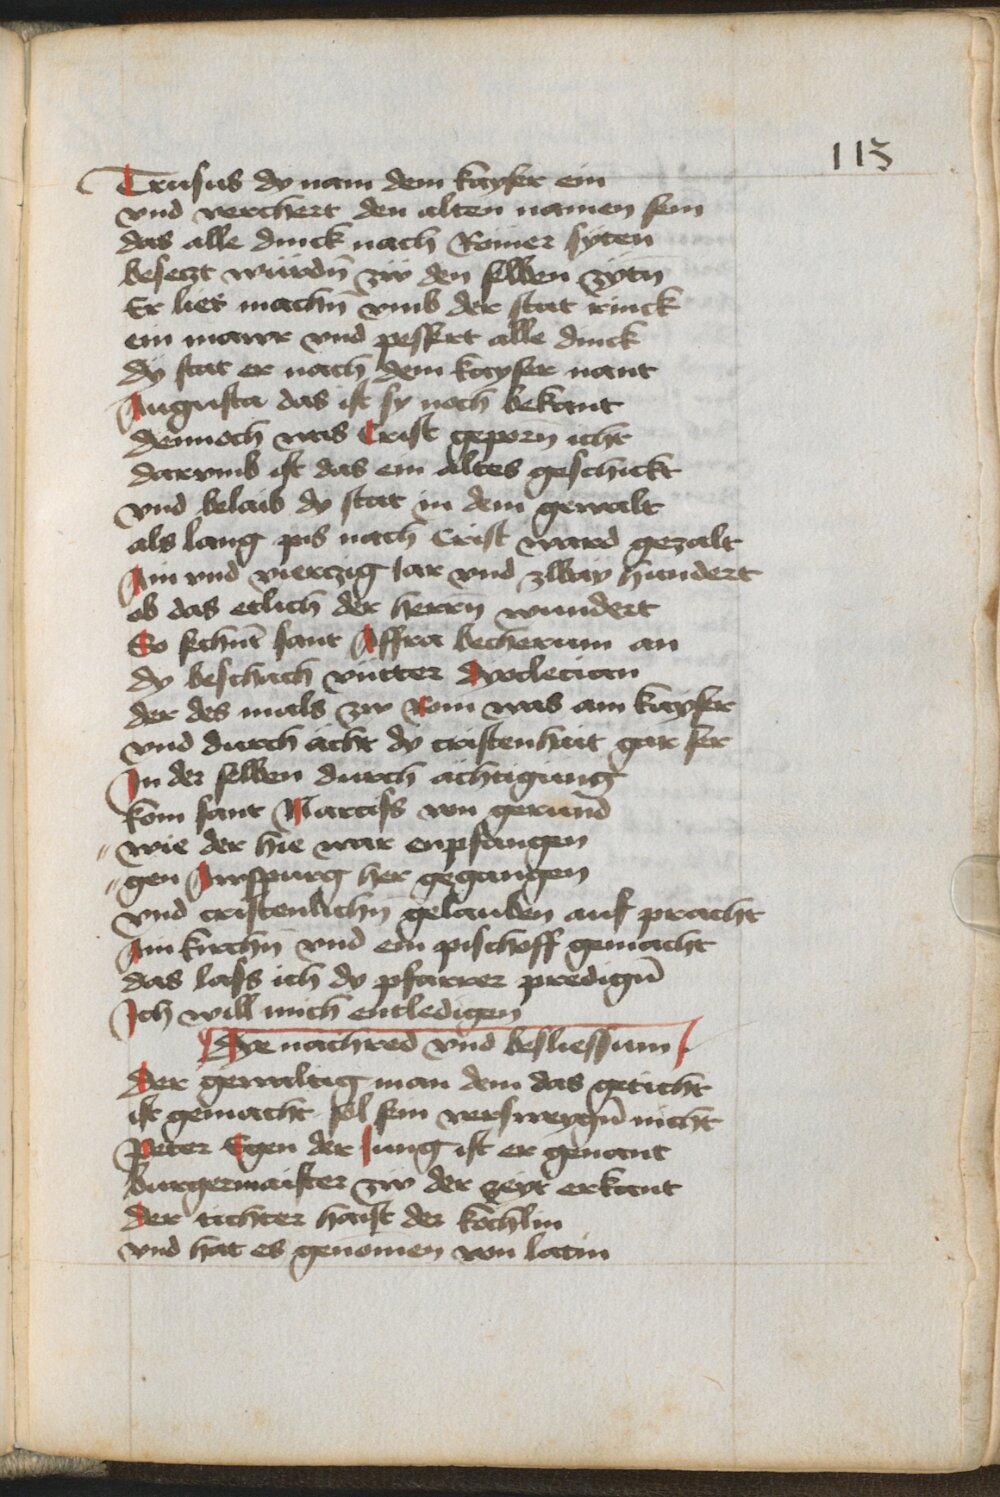 115
Trusus dy nam dem kayser ein
vnd verchert den alten namen sein
das alle dinck nach Romer syten
beseczt würdn̄ zw den selben zytn̄
Er lies machn̄ vmb der stat rinck
ein mawr vnd pessert alle dinck
dy stat er nach dem kayser nant
Augusta das ist sy noch bekant
dennoch was Crist geporn̄ icht
darvmb ist das ein altes geschickt
vnd belaib dy stat in dem gewalt
als lang pis nach Crist ward gezalt
Ain vnd vierczig Iar vnd zway hundert
ob das etlich der herrn̄ wundert
So sechnt̄ sant Affra becherum an
dy beschach vntter dyoclecian
der des mals zw Rom was ain kaysser
vnd durch acht dy cristenhait gar ser
In der selben durch achtigung
kom sant Narciss von gerund
wie der hie war enpfangen
gen Awspurg her gegangen
vnd cristenlichn̄ gelauben auf pracht
Ain kirchn̄ vnd ein pischoff gemacht
das lass ich dy pfarrer predign̄
Ich will mich entledigen
Dye nachred vnd besliessum
Der gewaltig man dem das geticht
ist gemacht sol sein versweygn̄ nicht
Peter Egen der Iung ist er genant
burgermaister zw der zeyt erkant
Der tichter haist der kochlin
vnd hat es genomen von latin